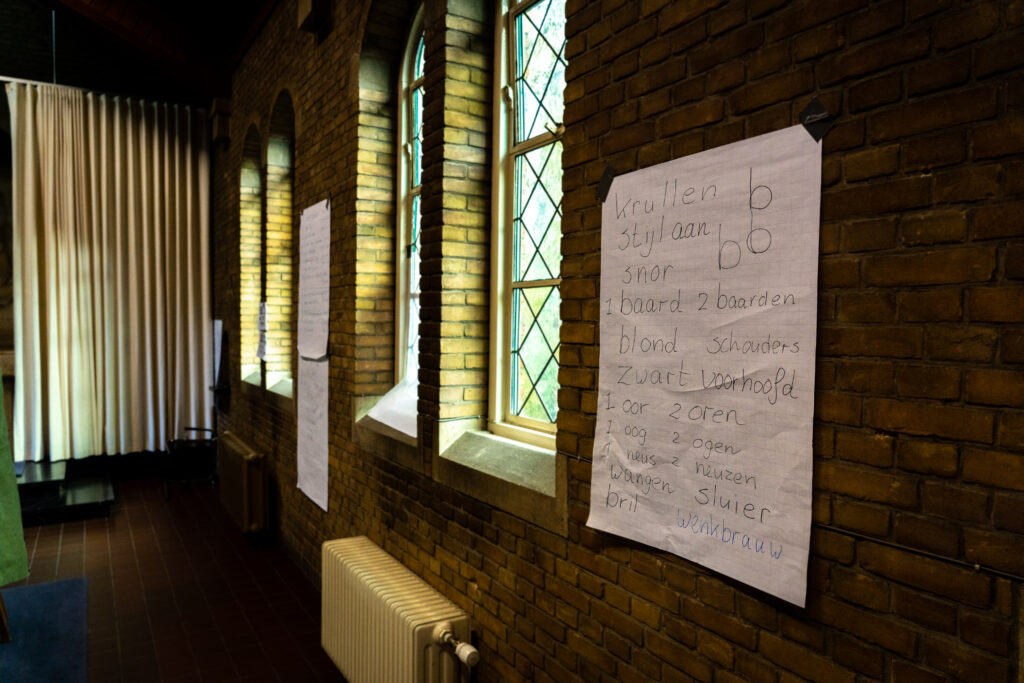 krullen b
stijl aan b b
snor
1 baard 2 baarden
blond schouders
zwart voorhoofd
1 oor 2 oren
1 oog 2 ogen
1 neus 2 neuzen
wangen sluier
bril wenkbrauw